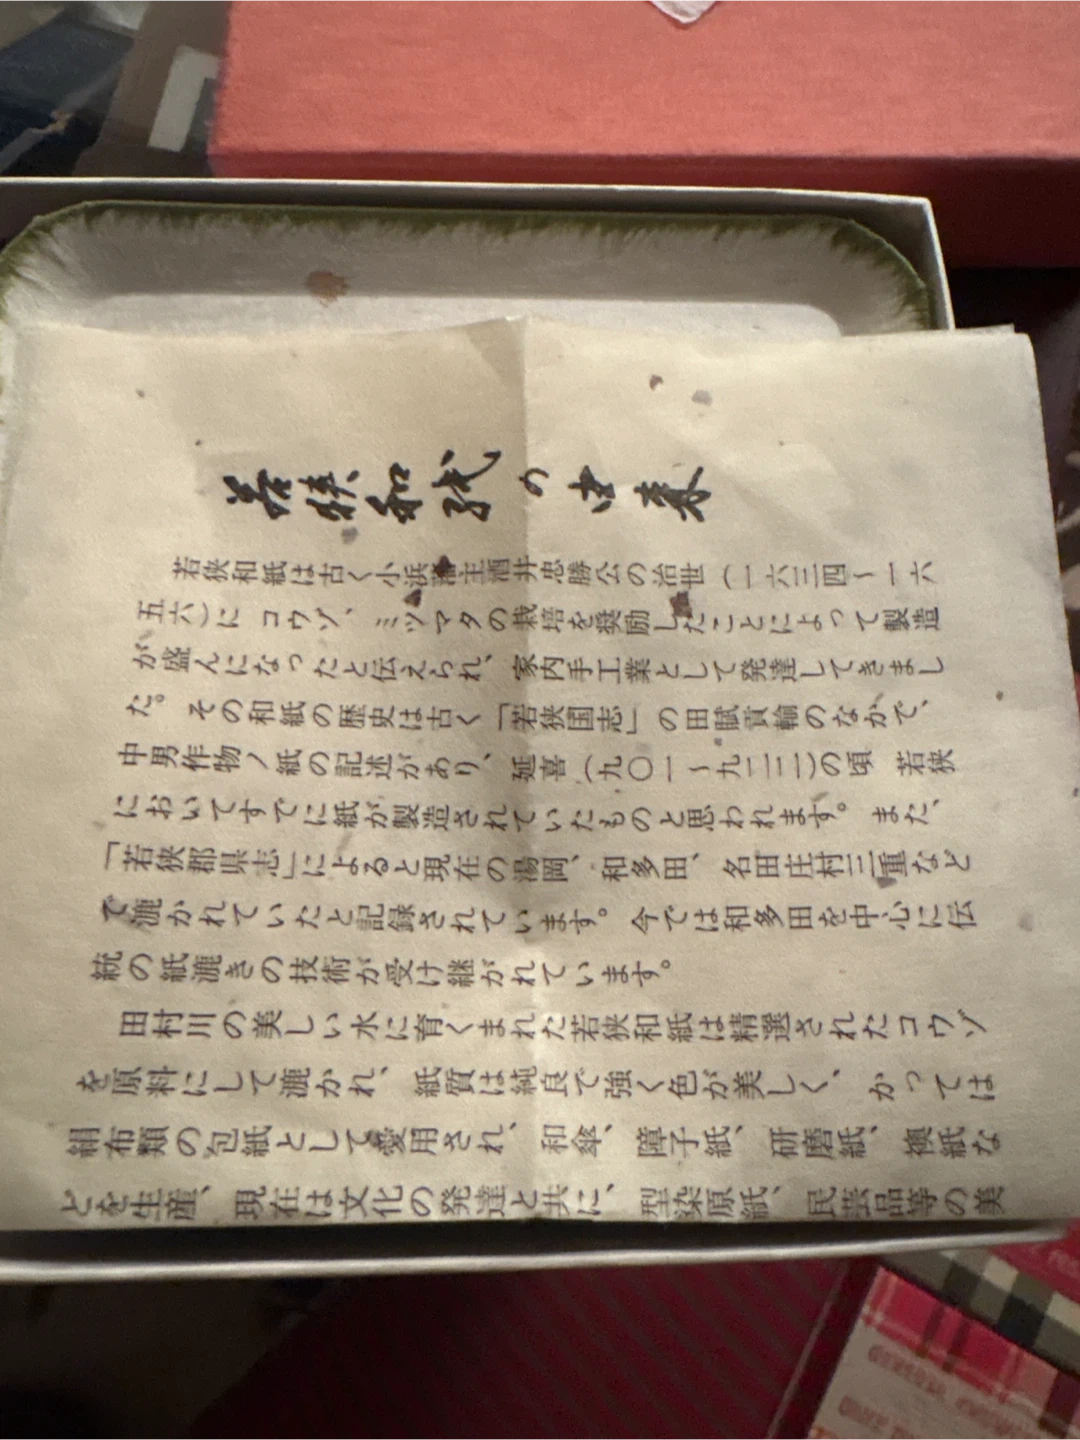 若狭和紙の由来
若狭和紙は古く小浜藩主酒井忠勝公の治世（一六三四〜一六
五六）に コウゾ、ミツマタの栽培を奨励したことによって製造
が盛んになったと伝えられ、家内手工業として発達してきまし
た。その和紙の歴史は古く「若狭国志」の田賦貢輸のなかで、
中男作物ノ紙の記述があり、延喜（九〇一〜九二二）の頃 若狭
においてすでに紙が製造されていたものと思われます。また、
「若狭郡県志」によると現在の湯岡、和多田、名田庄村三重など
で漉かれていたと記録されています。今では和多田を中心に伝
統の紙漉きの技術が受け継がれています。
田村川の美しい水に育くまれた若狭和紙は精選されたコウゾ
を原料にして漉かれ、紙質は純良で強く色が美しく、かつては
絹布類の包紙として愛用され、和傘、障子紙、研磨紙、襖紙な
どを生産、現在は文化の発達と共に、型染原紙、民芸品等の美